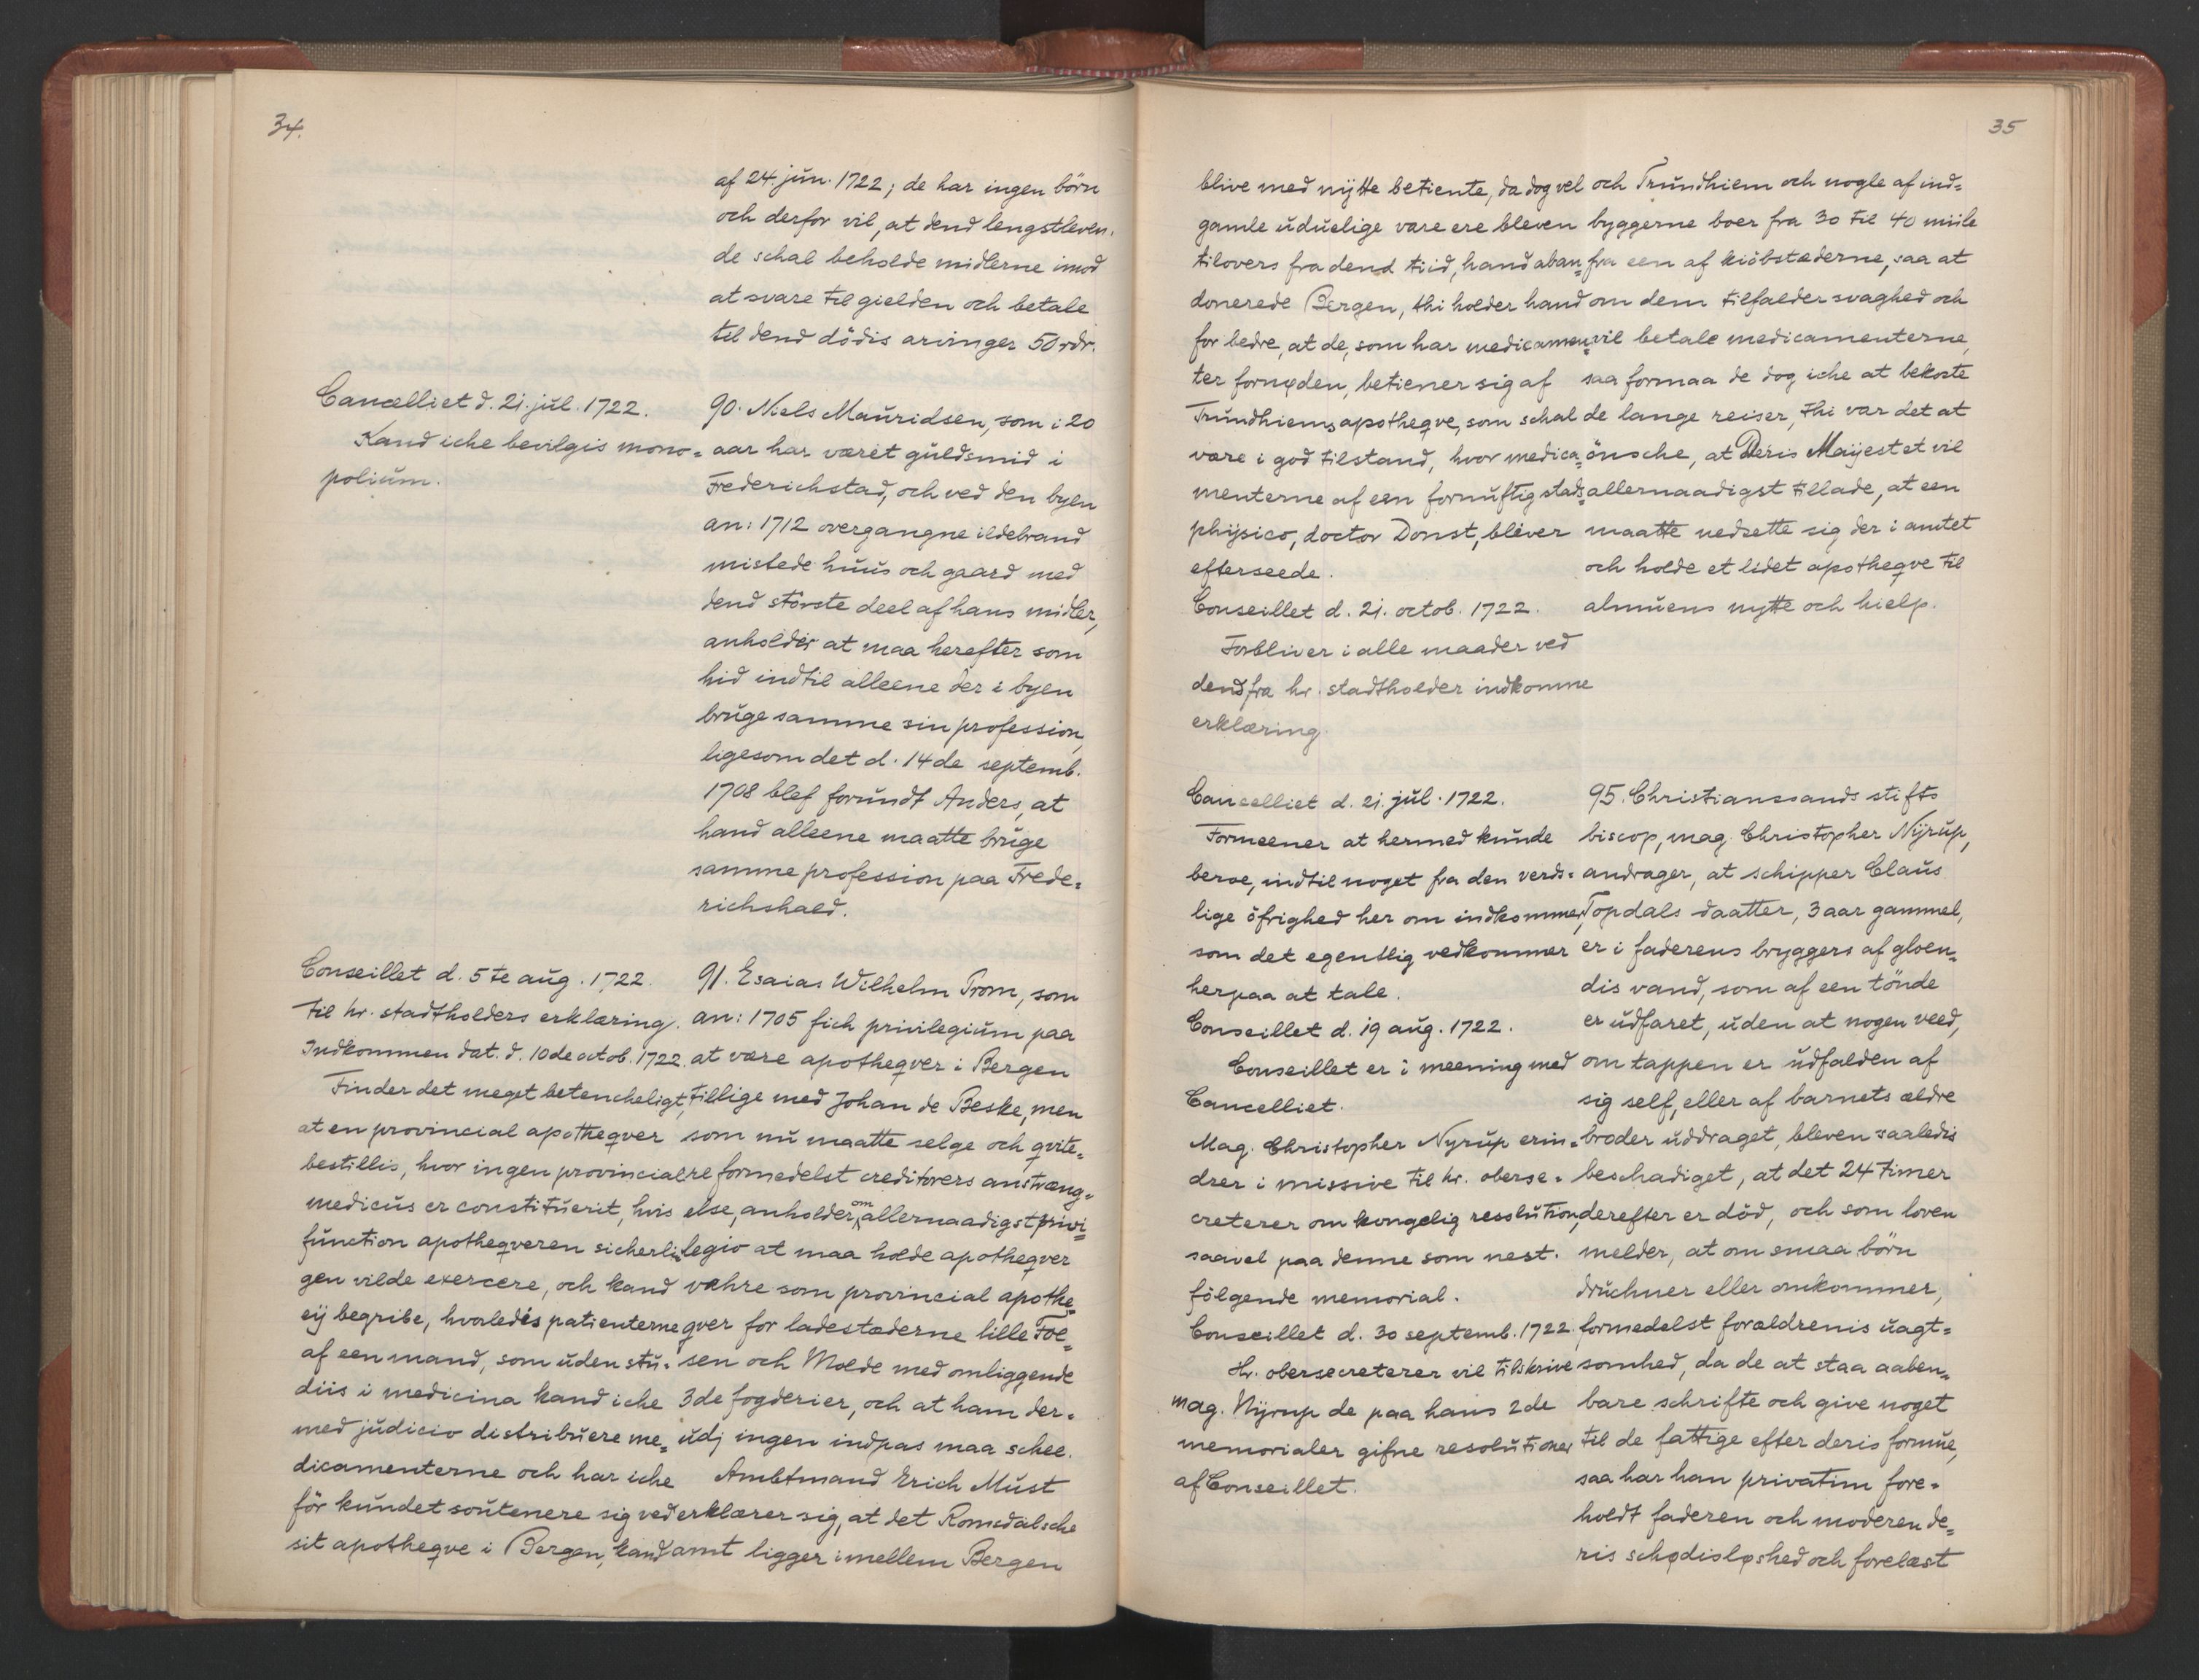 34.
af 24 jun. 1722; de har ingen börn
och derfor vil, at dend lengstleven-
de schal beholde midlerne imod
at svare til gielden och betale
til dend dödis arvinger 50 rdr.
Cancelliet d. 21. jul. 1722.
Kand iche bevilgis mono=
polium.
90. Niels Mauridsen, som i 20
aar har været guldsmid i
Frederichstad, och ved den byen
an: 1712 overgangne ildebrand
mistede huus och gaard med
dend störste deel af hans midler,
anholder at maa herefter som
hid indtil alleene der i byen
bruge samme sin profession,
ligesom det d. 14de septemb.
1708 blef forundt Anders, at
hand alleene maatte bruge
samme profession paa Frede=
richshald.
Conseillet d. 5te aug. 1722.
Til hr. stadtholders erklæring.
Indkommen dat. d. 10de octob. 1722.
Finder det meget betencheligt,
at en provincial apotheqver
bestillis, hvor ingen provincial
medicus er constituerit, hvis
function apotheqveren sicherli=
gen vilde exercere, och kand
eÿ begribe, hvorledes patienterne
af een mand, som uden stu=
diis i medicina kand iche
med judicio distribuere me=
dicamenterne och har iche
för kundet soutenere sig ved
sit apotheqve i Bergen, kand
91. Esaias Wilhelm Trom, som
an: 1705 fich privilegium paa
at være apotheqver i Bergen
tillige med Johan de Beske, men
som nu maatte selge och qvite=
re formedelst creditorers anstræng=
else, anholder om allernaadigst privi=
legio at maa holde apotheqver
vahre som provincial apothe=
qver for ladestæderne lille Foe=
sen och Molde med omliggende
3de fogderier, och at ham der=
udj ingen indpas maa schee.
Ambtmand Erich Must
erklærer sig, at det Romsdalsche
amt ligger imellem Bergen
35
blive med nÿtte betiente, da dog vel
gamle uduelige vare ere bleven
tilovers fra dend tiid, hand aban=
donerede Bergen, thi holder hand
for bedre, at de, som har medicamen=
ter fornøden, betiener sig af
Trundhiems apotheqve, som schal
være i god tilstand, hvor medica=
menterne af een fornuftig stads=
phÿsico, doctor Donst, bliver
efterseede.
Conseillet d. 21. octob. 1722.
Forbliver i alle maader ved
dend fra hr. stadtholder indkomne
erklæring.
och Trundhiem och nogle af ind=
byggerne boer fra 30 til 40 miile
fra een af kiöbstæderne, saa at
om dem tilfalder svaghed och
vil betale medicamenterne,
saa formaa de dog iche at bekoste
de lange reiser, thi var det at
önsche, at Deris Maÿestet vil
allernaadigst tillade, at een
maatte nedsette sig der i amtet
och holde et lidet apotheqve til
almuens nytte och hielp.
Cancelliet d. 21. jul. 1722.
Formeener at hermed kunde
beroe, indtil noget fra den verds=
lige öfrighed her om indkommer,
som det egentlig vedkommer
herpaa at tale.
Conseillet d. 19 aug. 1722.
Conseillet er i meening med
Cancelliet.
Mag. Christopher Nyrup erin=
drer i missive til hr. oberse=
creterer om kongelig resolution,
saavel paa denne som nest=
fölgende memorial.
Conseillet d. 30 septemb. 1722.
Hr. obersecreterer vil tilskrive
mag. Nÿrup de paa hans 2de
memorialer gifne resolutioner
af Conseillet.
95. Christianssands stifts
biscop, mag. Christopher Nÿrup,
andrager, at schipper Claus
Topdals daatter, 3 aar gammel,
er i faderens bryggers af gloen=
dis vand, som af een tönde
er udfaret, uden at nogen veed,
om tappen er udfalden af
sig self, eller af barnets ældre
broder uddraget, bleven saaledis
beschadiget, at det 24 timer
derefter er död, och som loven
melder, at om smaa börn
druchner eller omkommer,
formedelst forældrenis uagt=
somhed, da de at staa aaben=
bare schrifte och give noget
til de fattige efter deris formue,
saa har han privatim fore=
holdt faderen och moderen de=
ris schødisløshed och forelæst